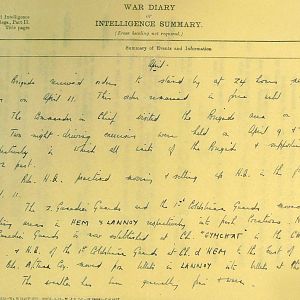 WAR DIARY
OF
INTELLIGENCE SUMMARY.
(Erase heading not required.)
d Intelligence
Regs., Part II.
Title pages
Summary of Events and Information
April.
Brigade received orders to stand by at 24 hours
on on April 11. This order remained in force until
The Commander in Chief visited the Brigade area on
Two night driving exercises were held on April 9 &
in which all units of the Brigade & supporting
part.
Bde. H.Q. practised moving & setting up H.Q. in the
11.
The 2. Grenadier Guards and the 1st Coldstream Guards moved
areas in HEM & LANNOY respectively into fresh locations.
Grenadier Guards is now established at Ch. in the CH
& H.Q. of the 1st Coldstream Guards at Ch. d'HEM to the East of
Bde. A/Tank Coy. moved from billets in LANNOY into billets at
The weather has been generally fair & warm.